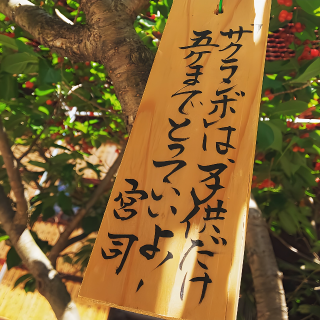 サクランボは、子供だけ
五ケまでとっていいよ！
宮司